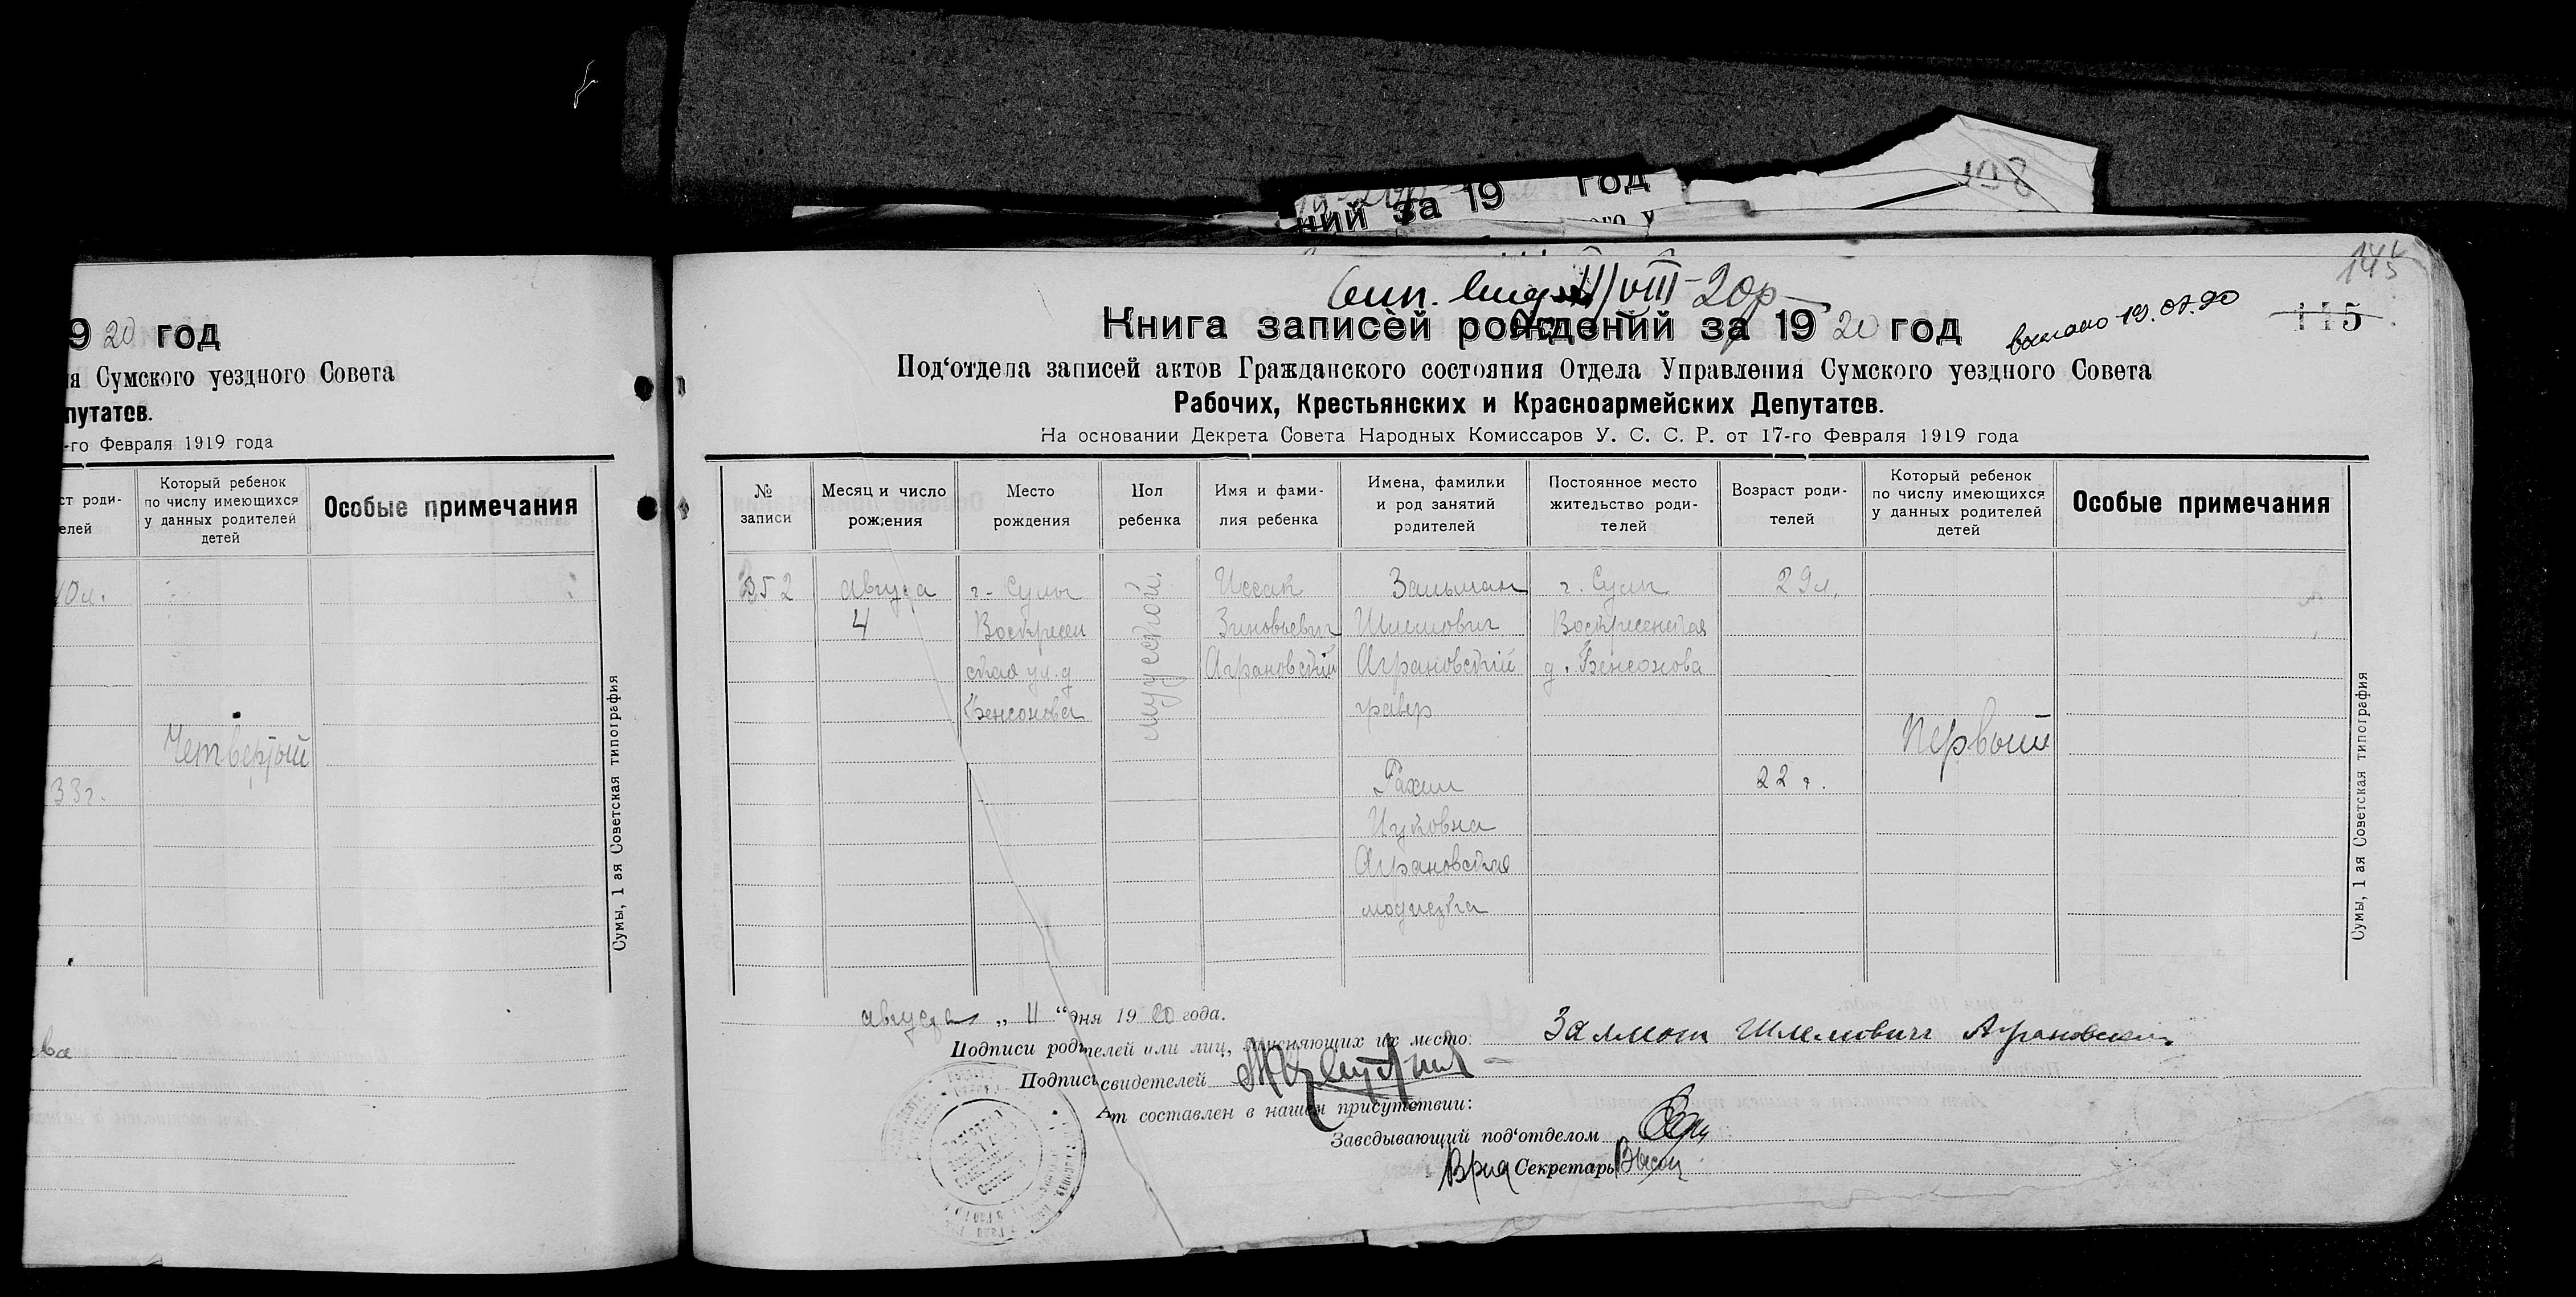 ний за 19 год
198
9 20 год
я Сумского уездного Совета
путатов.
-го Февраля 1919 года
ст роди-
елей
Который ребенок
по числу имеющихся
у данных родителей
детей
Особые примечания
40л.
Четвертый
33г.
ва
Сумы, 1 ая Советская типография
145
115
VIII-20р
19.07.90
Книга записей рождений за 1920 год
Под‘отдела записей актов Гражданского состояния Отдела Управления Сумского уездного Совета
Рабочих, Крестьянских и Красноармейских Депутатов.
На основании Декрета Совета Народных Комиссаров У. С. С. Р. от 17-го Февраля 1919 года
№
записи
Месяц и число
рождения
Место
рождения
Пол
ребенка
Имя и фами-
лия ребенка
Имена, фамилии
и род занятий
родителей
Постоянное место
жительство роди-
телей
Возраст роди-
телей
Который ребенок
по числу имеющихся
у данных родителей
детей
Особые примечания
352
августа
4
г. Сумы
Воскресен
ская ул. д
Бенсонова
мужской.
Иссак
Зиновьевич
Аграновский
Зальман
Шлемович
Аграновский
гравер
Рахил
Ицковна
Аграновская
модистка
г. Сумы
Воскресенская
д. Бенсонова
29л.
22 г.
Первый
августа „ 11 “ дня 1920 года.
Подписи родителей или лиц, заменяющих их место: Залмон Шлемович Аграновский
Подписи свидетелей
Акт составлен в нашем присутствии:
Заведывающий под‘отделом
Врид Секретарь
Сумы, 1 ая Советская типография